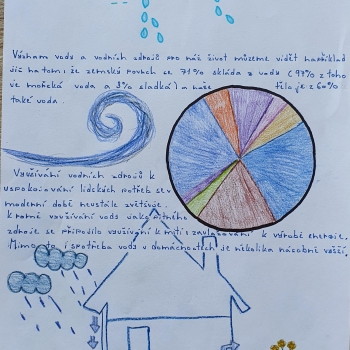 Význam vody a vodních zdrojů pro náš život můžeme vidět například
již na tom, že zemský povrch se 71% skládá z vody (97% z toho
je mořská voda a 3% sladká) a naše tělo je z 60%
také voda.
Využívání vodních zdrojů k
uspokojování lidských potřeb se v
moderní době neustále zvětšuje.
Kromě využívání vody jako pitného
zdroje se připojilo využívání k mytí, zavlažování, k výrobě energie.
Mimo to i spotřeba vody v domácnostech je několika násobně vyšší.